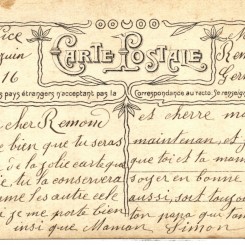 Juin
16
CARTE POSTALE
pays étrangers n'acceptant pas la Correspondance au recto. Se renseign
cher Remond
bien que tu seras
de la jolie cartique
tu la conservera
les autre cele
je me porte bien
insi que Maman
et cherre m
maintenan, et j
que toi et la mam
soyer en bonne
aussi, soit toujour
ton papa qui t'an
Simon